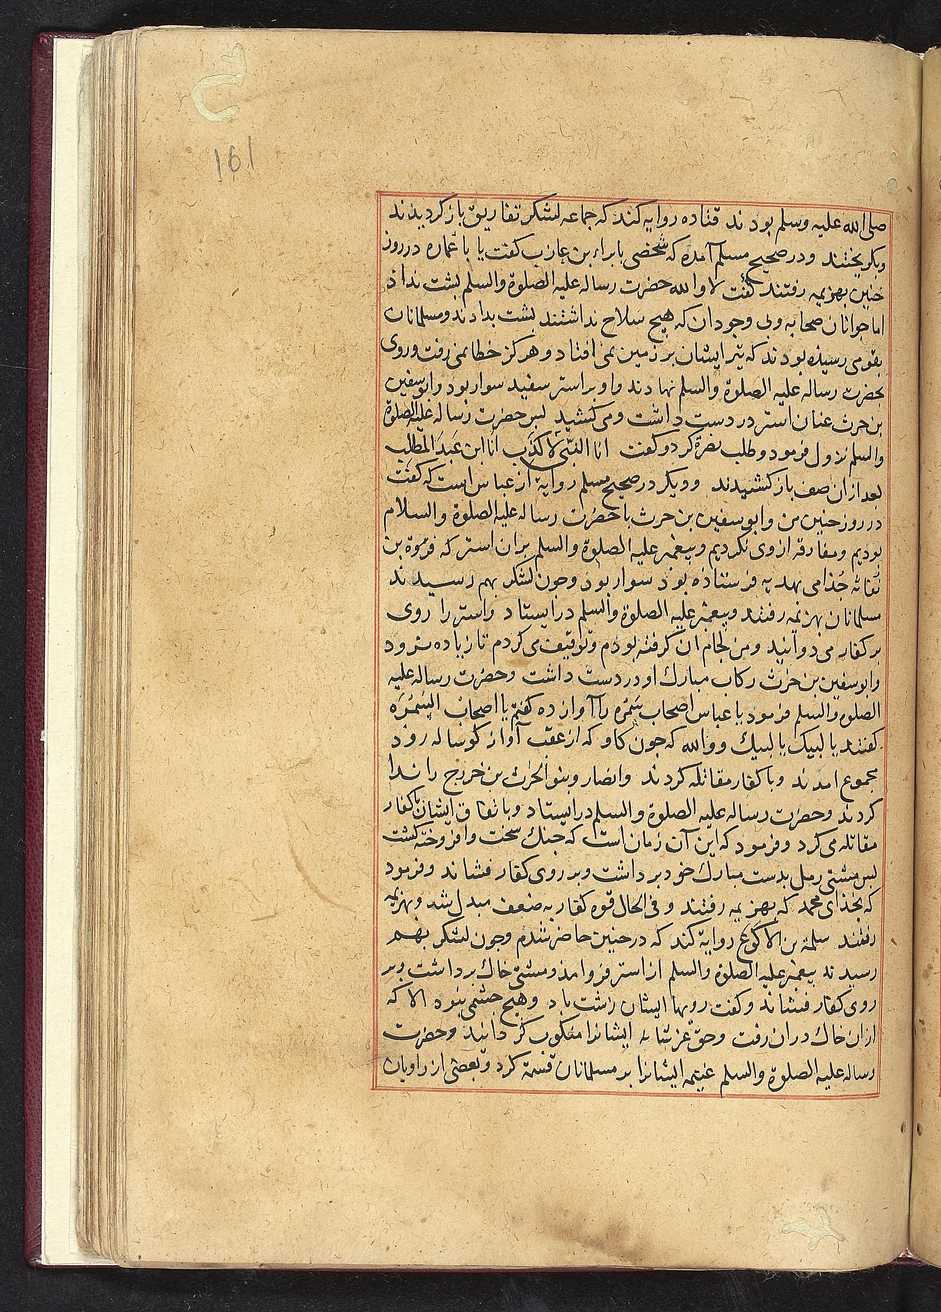 161
صلی الله علیه وسلم بودند قتاده روایه کند که جماعه لشکر تفاریق باز کردیدند
وبکریختند ودر صحیح مسلم آمده که شخصی با براء بن عازب کفت یا با عماره در روز
حنین بهزیمه رفتند کفت لا والله حضرت رساله علیه الصلوة والسلم پشت نداد
اما جوانان صحابه ولی وجودان که هیچ سلاح نداشتند پشت بدادند ومسلمانان
بقومی رسیده بودند که تیر ایشان بر زمین نمی افتاد وهرکز خطا نمی رفت وروی
بحضرت رساله علیه الصلوة والسلم نهادند واو بر استر سفید سوار بود وابوسفین
بن حرث عنان استر در دست داشت ومی کشید پس حضرت رساله علیه الصلوة
والسلم نزول فرمود وطلب نصرة کرد وکفت انا النبی لا کذب انا ابن عبد المطلب
بعد ازان صف باز کشیدند ودیکر در صحیح مسلم روایة از عباس است که کفت
در روز حنین من وابو سفین بن حرث با حضرت رساله علیه الصلوة والسلام
بودیم ومفارقه ازوی نکردیم وپیغمبر علیه الصلوة والسلم بران استر که فروة بن
نفاثه جذامی بهدیه فرستاده بود سوار بود وچون لشکر بهم رسیدند
مسلمانان بهزیمه رفتند وپیغمبر علیه الصلوة والسلم در ایستاد واستر را روی
بر کفار می دوانید ومن لجام آن کرفته بودم وتوقیف می کردم تا زیاده نرود
وابوسفین بن حرث رکاب مبارک او در دست داشت وحضرت رساله علیه
الصلوه والسلم فرمود یا عباس اصحاب سمره را آواز ده کفتم یا اصحاب السمره
کفتند یا لبیک یا لبیک ووالله که چون کاو که از عقب آواز کوساله رود
مجموع آمدند وبا کفار مقاتله کردند وانصار وبنو الحرث بن خزرج را ندا
کردند وحضرت رساله علیه الصلوة والسلم در ایستاد وباتفاق ایشان با کفار
مقاتله می کرد وفرمود که این آن زمان است که جنک سخت وافروخته کشت
پس مشتی رمل بدست مبارک خود برداشت وبر روی کفار فشاند وفرمود
که بخدای محمد که بهزیمه رفتند وفی الحال قوه کفار به ضعف مبدل شد وبهزیمه
رفتند سلمة بن الاکوع روایة کند که در حنین حاضر شدم وچون لشکر بهم
رسیدند پیغمبر علیه الصلوة والسلم از استر فرو آمد ومشتی خاک برداشت وبر
روی کفار فشاند وکفت رویها ایشان زشت باد وهیچ چشمی نبوده الا که
ازان خاک دران رفت وحق عز شانه ایشانرا منکوب کردانید وحضرت
رساله علیه الصلوة والسلم غنیمه ایشانرا بر مسلمانان قسمة کرد وبعضی از راویان